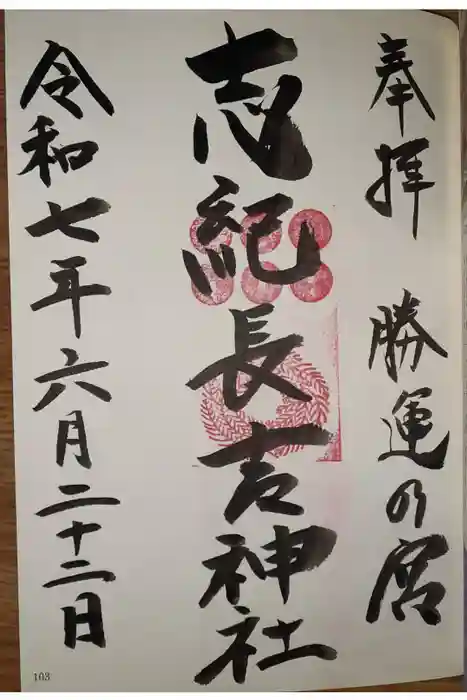 奉拝 勝運の宮
志紀長吉神社
令和七年六月二十二日
103